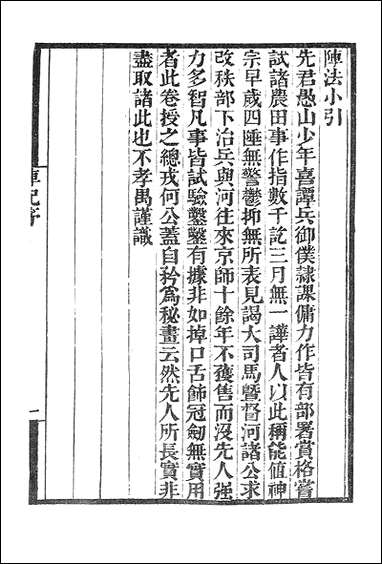 陣法小引
先君愚山少年喜譚兵御僕隸課傭力作皆有部署賞格嘗
試諸農田事作指數千訖三月無一譁者人以此稱能值神
宗早歲四陲無警鬱抑無所表見謁大司馬暨督河諸公求
改秩部下治兵與河往來京師十餘年不獲售而沒先人强
力多智凡事皆試驗鑿鑿有據非如掉口舌飾冠劒無實用
者此卷授之總戎何公蓋自矜爲秘畫云然先人所長實非
盡取諸此也不孝禺謹識
陣紀序
一